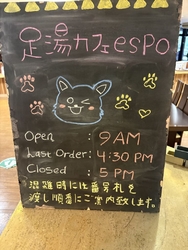 足湯カフェespo
Open : 9 AM
Last Order : 4:30 PM
Closed : 5 PM
混雑時には番号札を
渡し順番にご案内致します。